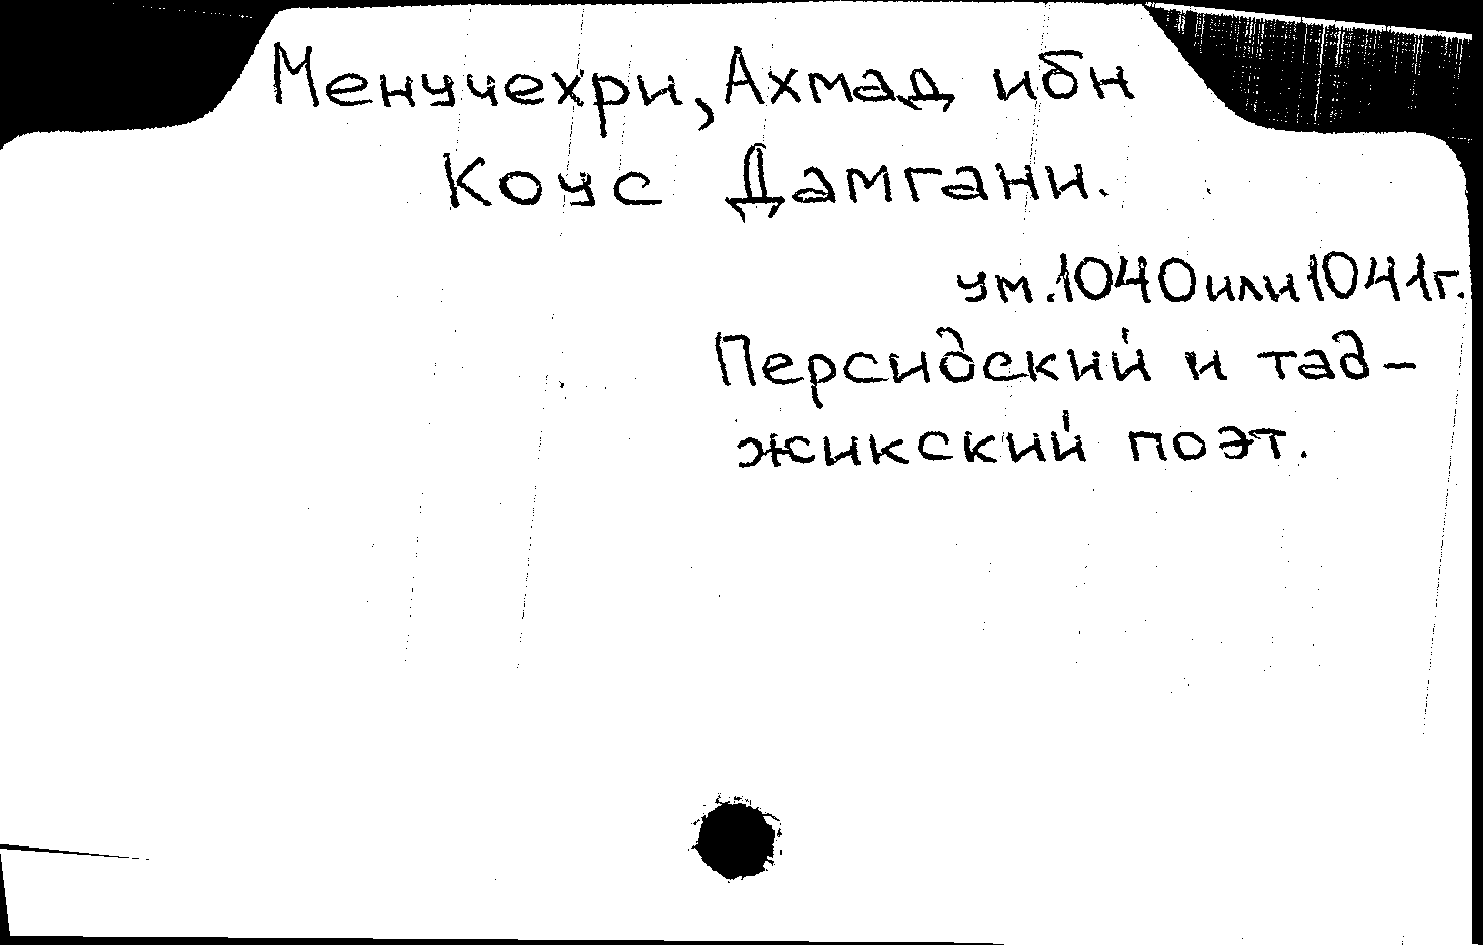 Менучехри, Ахмад ибн
Коус Дамгани.
ум. 1040 или 1041 г.
Персидский и тад-
жикский поэт.